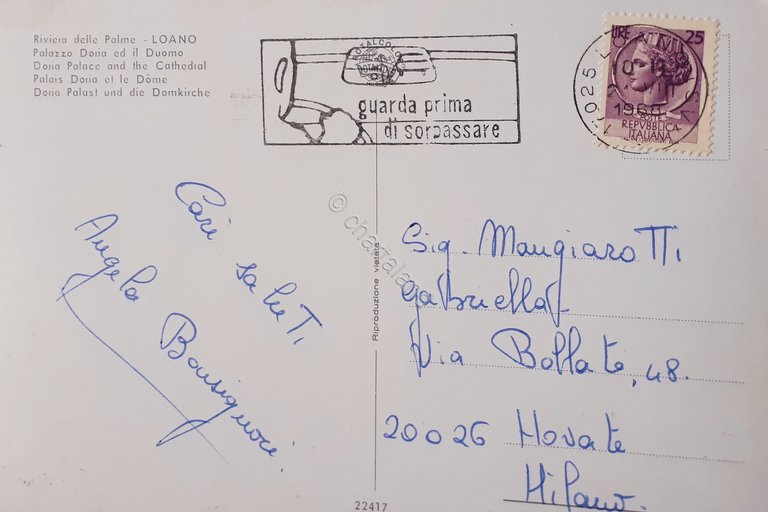 Riviera delle Palme - LOANO
Palazzo Doria ed il Duomo
Doria Palace and the Cathedral
Palais Doria et le Dôme
Doria Palast und die Domkirche
guarda prima
di sorpassare
LIRE 25
1968
REPVBBLICA
ITALIANA
Cari saluti
Angela Bonsignori
Reproduzione vietata
Sig. Mangiarotti
Gabriella
Via Bollate, 48.
20026 Novate
Milano.
22417